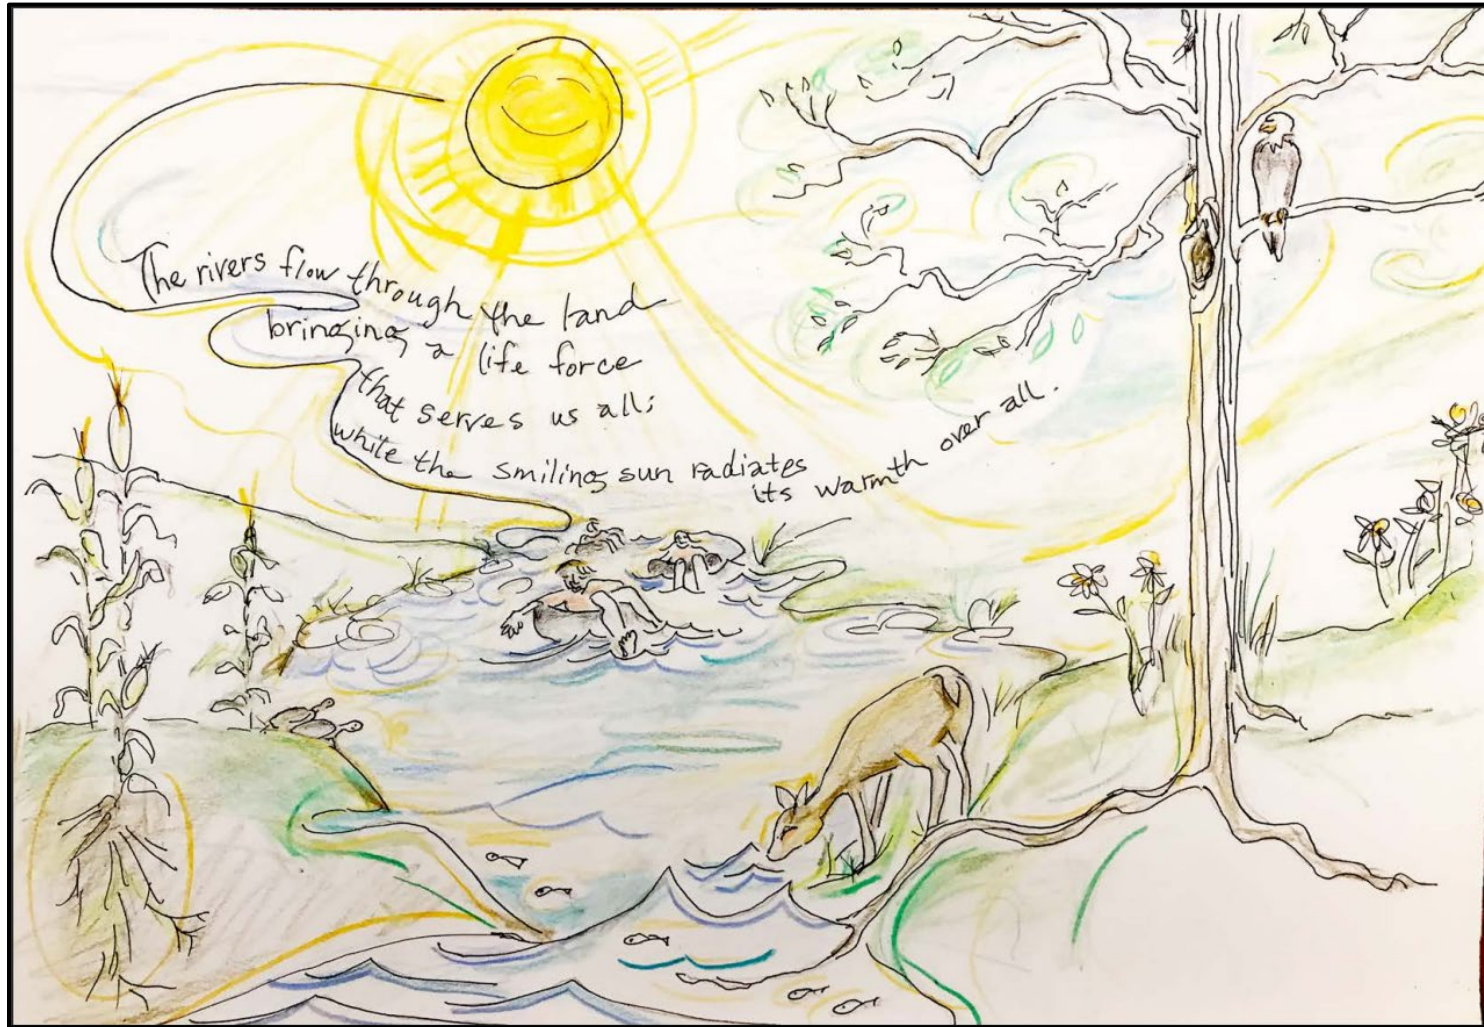 The rivers flow through the land
bringing a life force
that serves us all;
while the smiling sun radiates
its warmth over all.